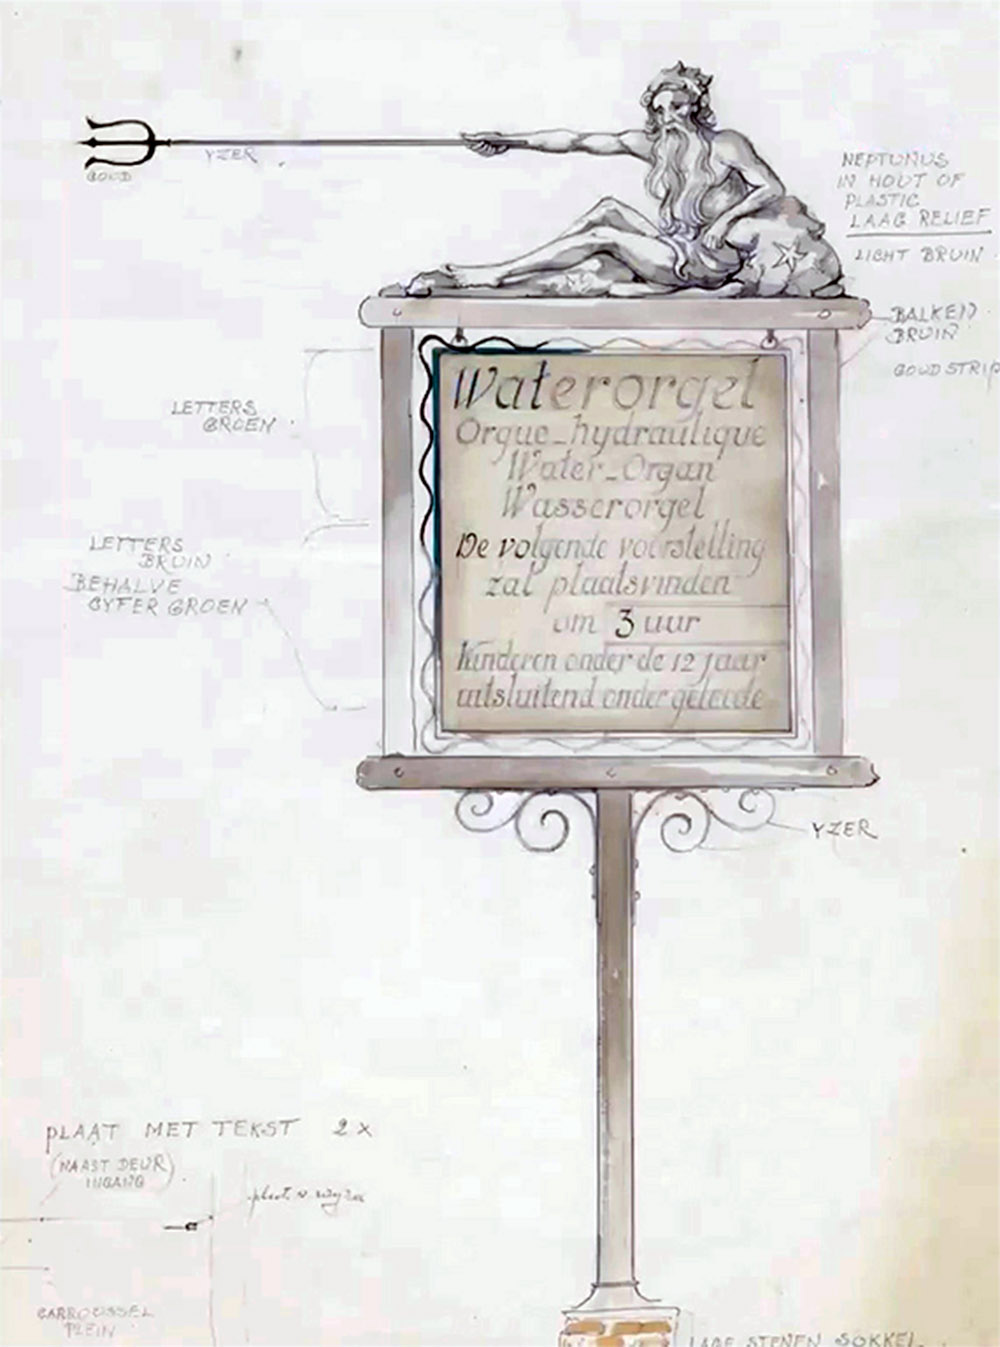 YZER
GOUD
NEPTUNUS
IN HOUT OF
PLASTIC
LAAG RELIEF
LICHT BRUIN
BALKEN
BRUIN
GOUDSTRIP
LETTERS
GROEN
LETTERS
BRUIN
BEHALVE
CYFER GROEN
Waterorgel
Orgue-hydraulique
Water-Organ
Wasserorgel
De volgende voorstelling
zal plaatsvinden
om 3 uur
Kinderen onder de 12 jaar
uitsluitend onder geleide
YZER
PLAAT MET TEKST 2 X
(NAAST DEUR)
INGANG
CARROUSSEL
PLEIN
LAGE STENEN SOKKEL